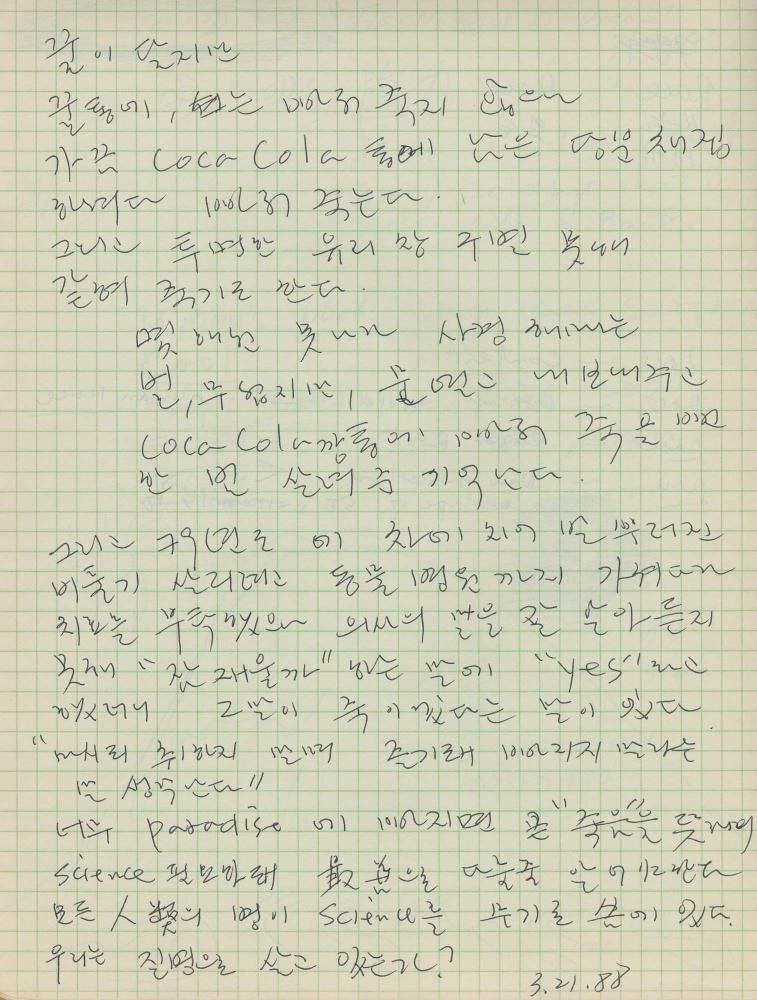 꿀이 달지만
꿀통에, 벌는 빠져 죽지 않으나
가끔 Coca Cola 통에 남은 당분 채집
하려다 빠져 죽는다.
그리고 투명한 유리창 구별 못해
갇혀 죽기도 한다.
몇 해전 못나가 사경 헤매는
벌, 무섭지만, 문 열고 내보내주고
Coca Cola 깡통에 빠져 죽을
한 번 살려준 기억난다.
그리고 차에 치어 발 부러진
비둘기 살리려고 동물병원까지 가져다가
치료를 부탁했으나 의사의 말을 잘 알아 듣지
못해 "잠 재울까" 하는 말에 "yes"라고
했더니 그 말이 죽이겠다는 말이 였다
"마시되 취하지 말며 즐기되 빠지지 말라는
말 생각난다"
너무 paradise 에 빠지면 곧 "죽음"을 뜻하며
science 필요악해 最善으로 다룰줄 알아야한다
모든 人類의 병이 science를 무기로 씀에 있다.
우리는 질병으로 살고 있는가?
3.21.88